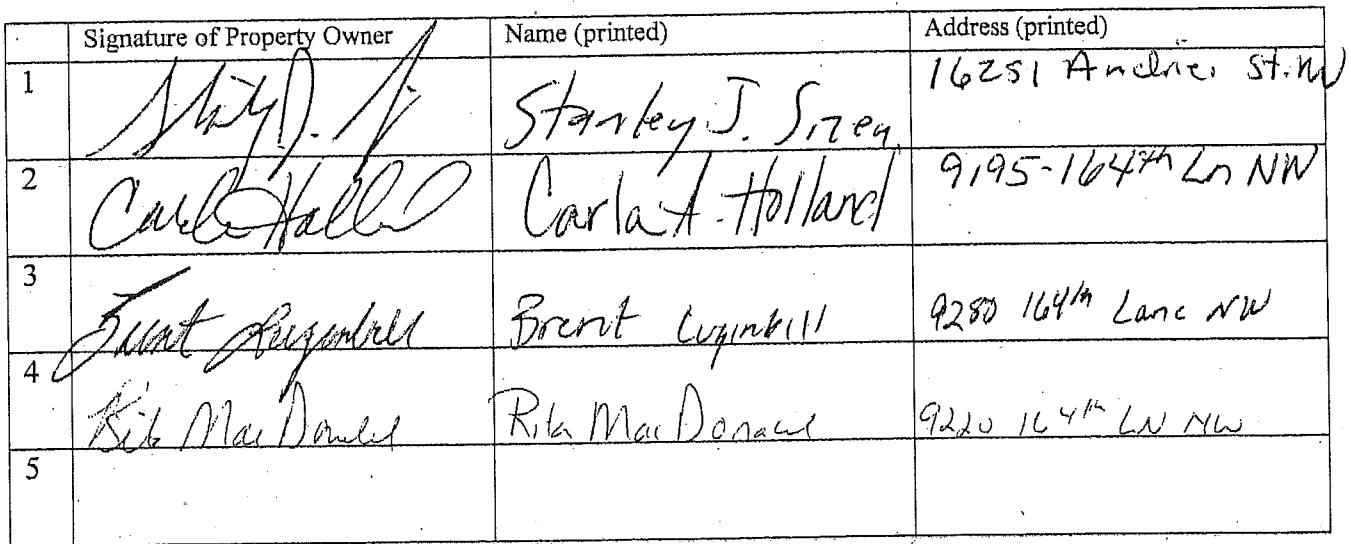 Signature of Property Owner Name (printed) Address (printed)
1 Stanley J. 16251 St. NW
2 Carla Holland Carla A. Holland 9195-164th Ln NW
3 Brent Luginbill Brent Luginbill 9280 164th Lane NW
4 Rita MacDonald Rita MacDonald 9220 164th LN NW
5